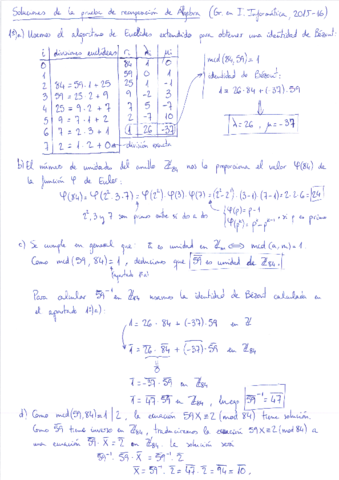 Soluciones de la prueba de recuperación de Álgebra (Gr. en I. Informática, 2015-16)
1º) a) Usamos el algoritmo de Euclides extendido para obtener una identidad de Bézout.
i divisiones euclídeas rᵢ λᵢ μᵢ
0 84 1 0
1 59 0 1
2 84 = 59·1 + 25 25 1 -1
3 59 = 25·2 + 9 9 -2 3
4 25 = 9·2 + 7 7 5 -7
5 9 = 7·1 + 2 2 -7 10
6 7 = 2·3 + 1 1 26 -37
7 2 = 1·2 + 0 división exacta
mcd(84,59) = 1
identidad de Bézout:
1 = 26·84 + (-37)·59
λ = 26, μ = -37
b) El número de unidades del anillo ℤ₈₄ nos lo proporciona el valor φ(84) de
la función φ de Euler:
φ(84) = φ(2²·3·7) = φ(2²)·φ(3)·φ(7) = (2²-2)·(3-1)·(7-1) = 2·2·6 = 24
2², 3 y 7 son primos entre sí dos a dos
φ(p) = p-1
φ(pⁿ) = pⁿ-pⁿ⁻¹ si p es primo
c) Se cumple en general que: a̅ es unidad en ℤₘ ⟺ mcd(a,m) = 1
Como mcd(59,84) = 1, deducimos que 5̅9̅ es unidad de ℤ₈₄.
(apartado 1º a)
Para calcular 5̅9̅⁻¹ en ℤ₈₄ usamos la identidad de Bézout calculada en
el apartado 1º) a):
1 = 26·84 + (-37)·59 en ℤ
1̅ = 2̅6̅·8̅4̅ + (-37)·5̅9̅ en ℤ₈₄
0̅
1̅ = -3̅7̅·5̅9̅ en ℤ₈₄
1̅ = 4̅7̅·5̅9̅ en ℤ₈₄, luego 5̅9̅⁻¹ = 4̅7̅
d) Como mcd(59,84) = 1 | 2, la ecuación 59X ≡ 2 (mod 84) tiene solución.
Como 5̅9̅ tiene inverso en ℤ₈₄, traducimos la ecuación 59X ≡ 2 (mod 84) a
una ecuación 5̅9̅·X̅ = 2̅ en ℤ₈₄. La solución será
5̅9̅⁻¹·5̅9̅·X̅ = 5̅9̅⁻¹·2̅
X̅ = 5̅9̅⁻¹·2̅ = 4̅7̅·2̅ = 9̅4̅ = 1̅0̅,